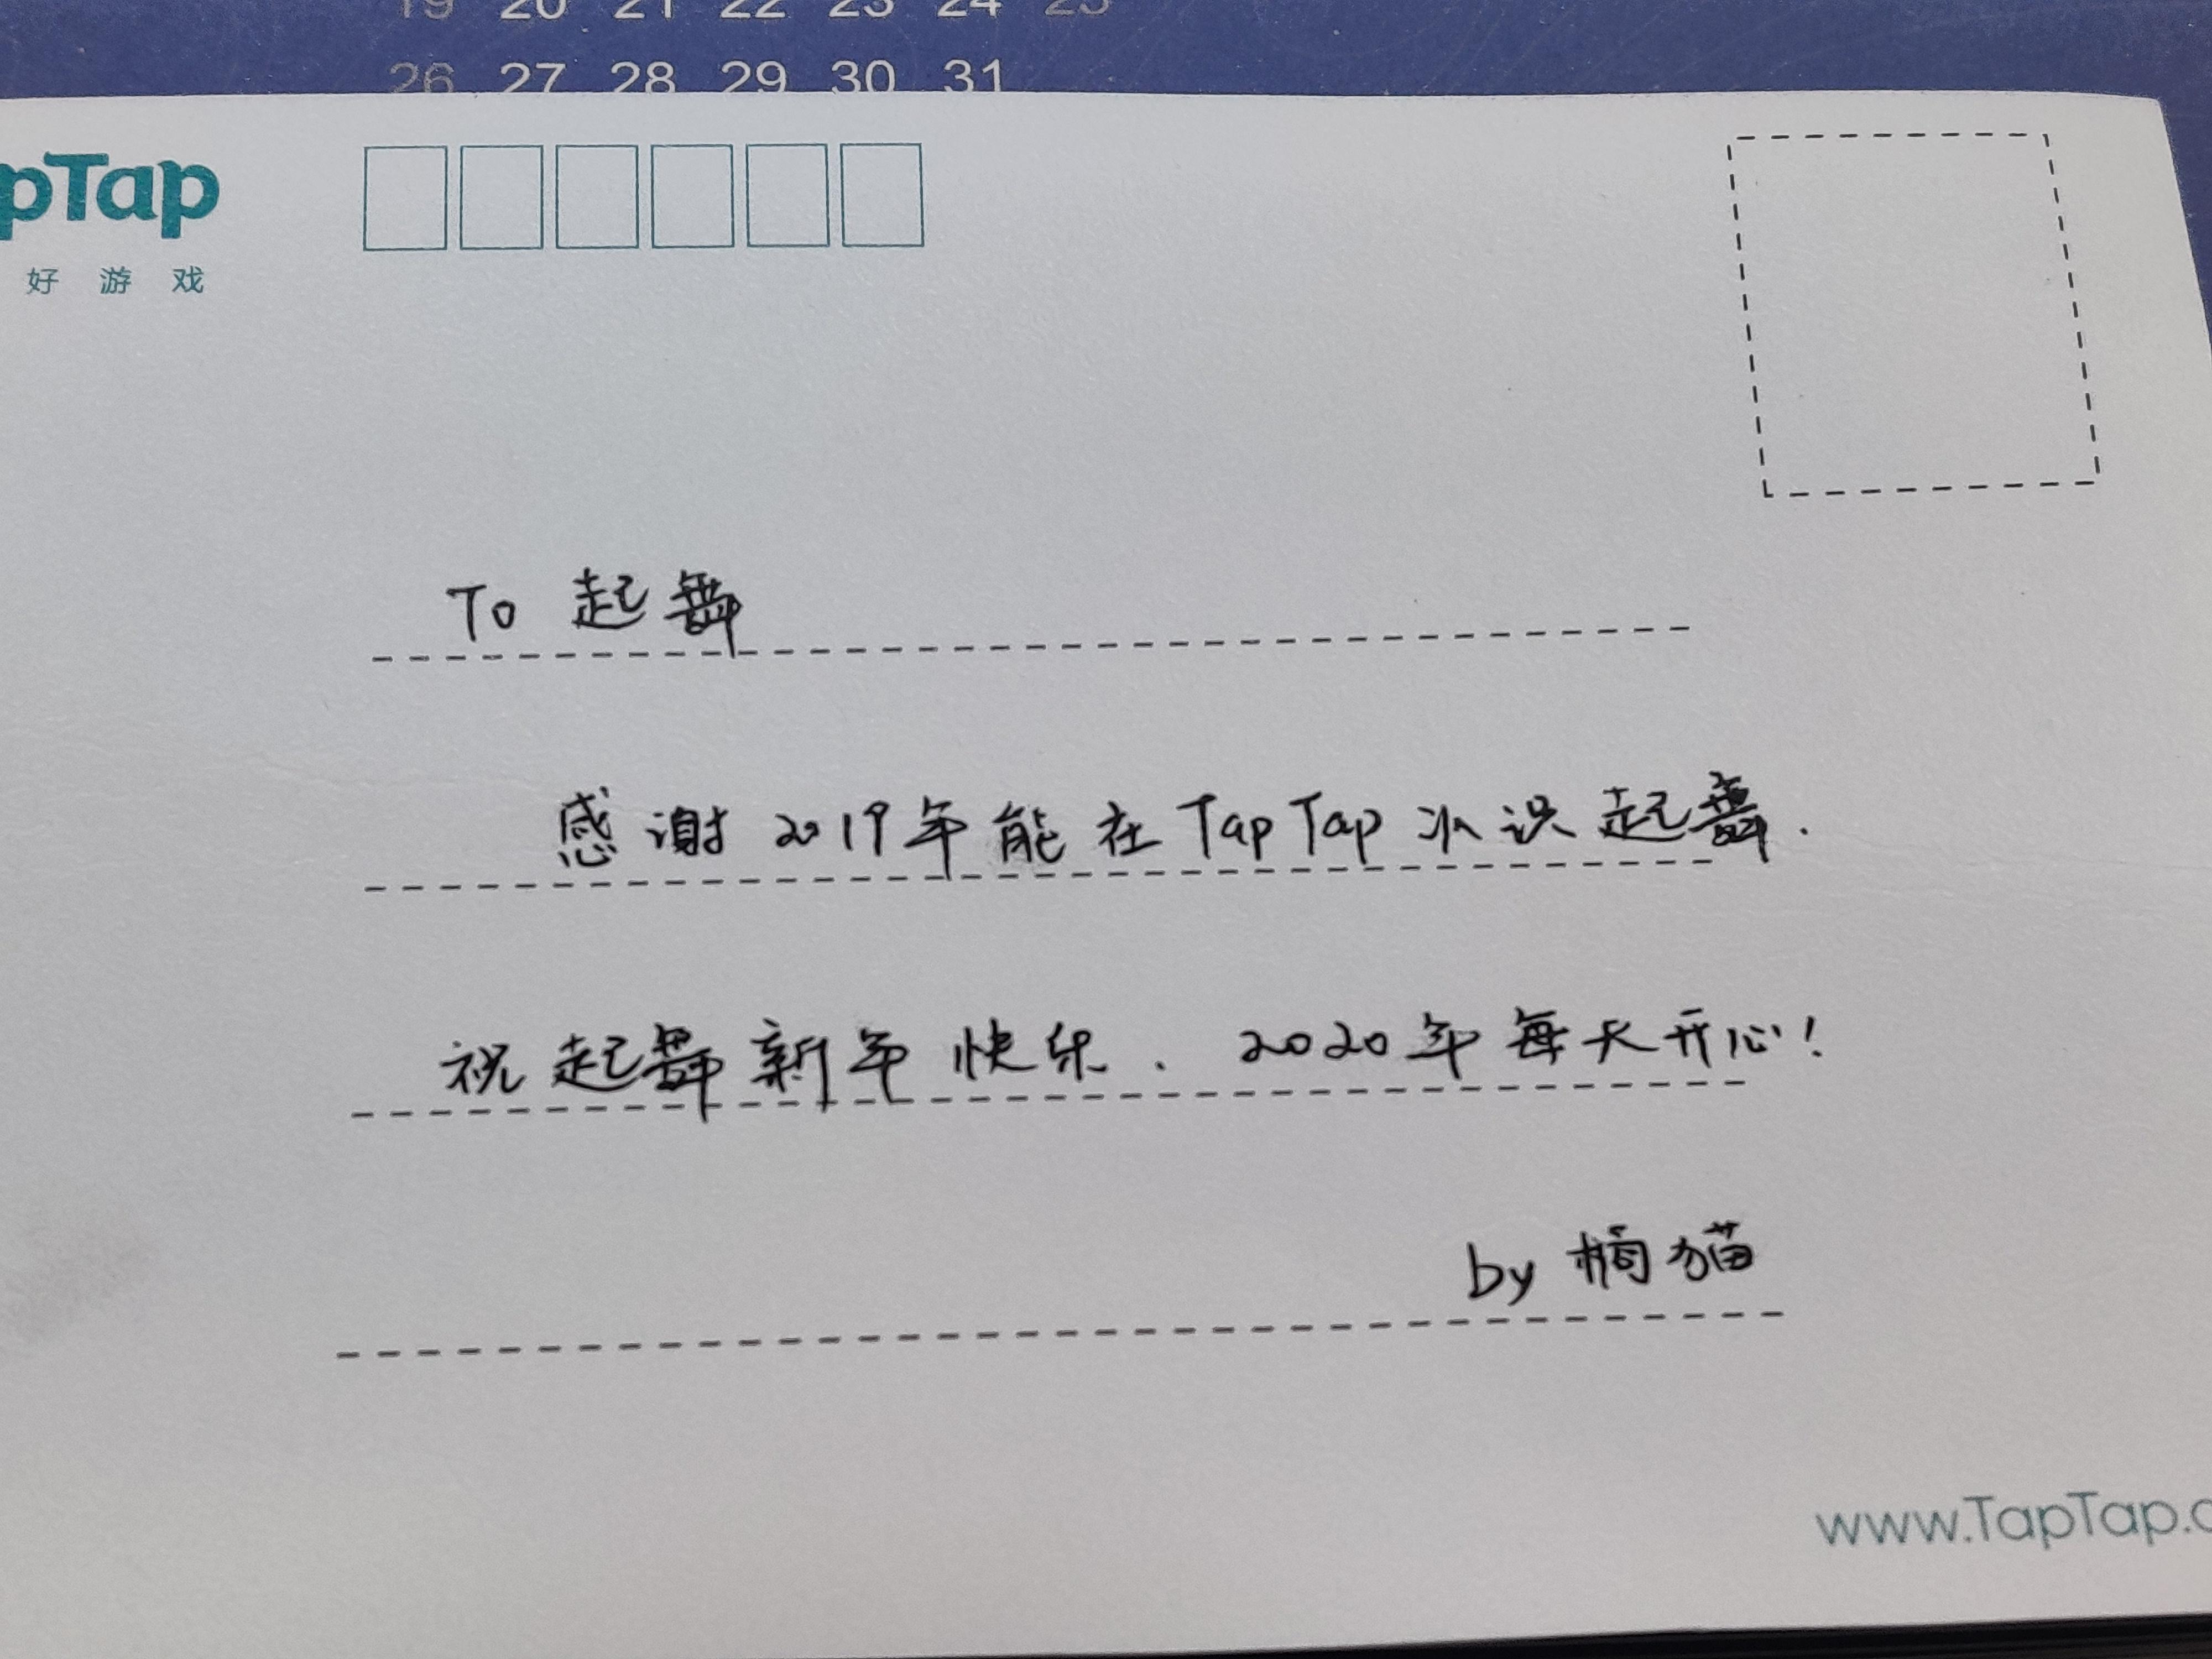 19 20 21 22 23 24 25
26 27 28 29 30 31
pTap
好游戏
To 起舞
感谢2019年能在TapTap认识起舞.
祝起舞新年快乐. 2020年每天开心!
by 橘猫
www.TapTap.c